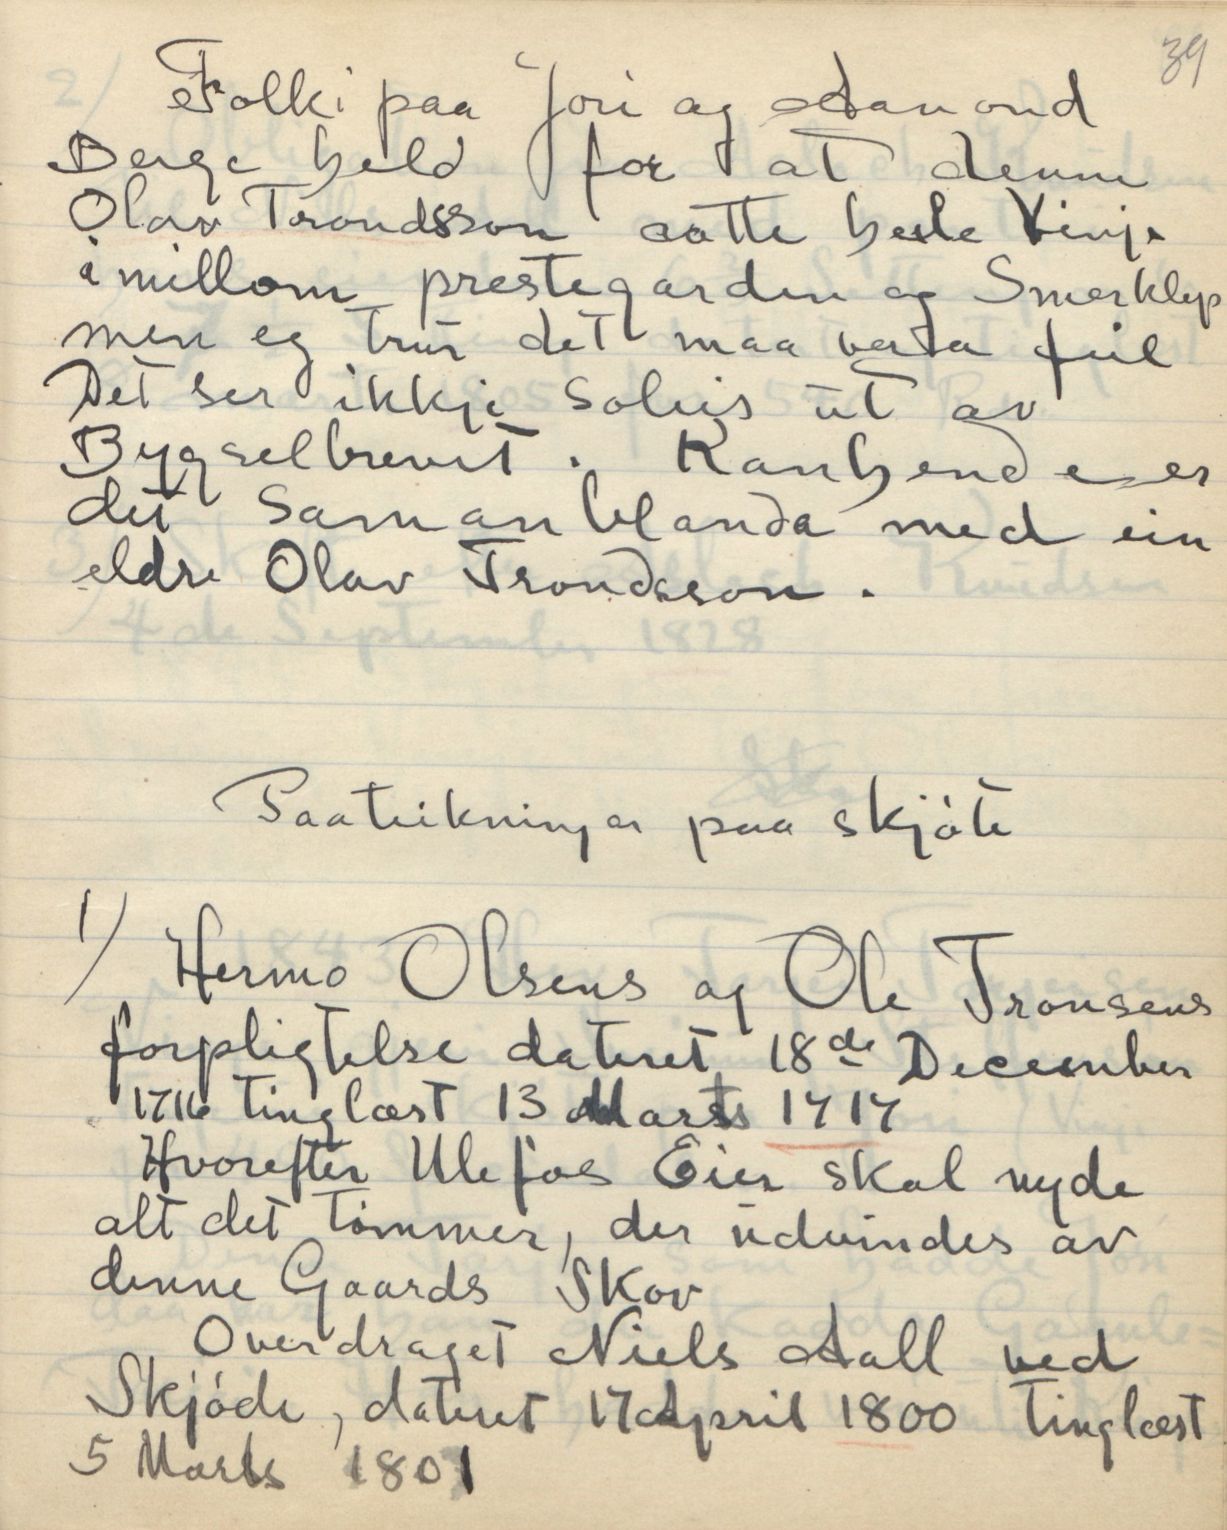 39
Folki paa Jori og Aanond
Berge held for at denne
Olav Trondsson aatte heile Vinje
imillom prestegarden og Smørklep
men eg trur det maa vera feil
Det ser ikkje soleis ut av
Bygselbrevet. Kanhende er
det samanblanda med ein
eldre Olav Trondsson.
Paateikningar paa skjøte
1) Hermo Olsens og Ole Tronsens
forpligtelse dateret 18de December
1716 tinglæst 13 Marts 1717
Hvorefter Ulefos Eier skal nyde
alt det tømmer, der udvindes av
denne Gaards Skov
Overdraget Niels Aall ved
Skjøde, dateret 17 April 1800 tinglæst
5 Marts 1801